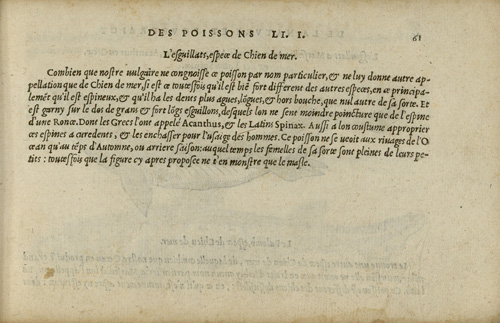 DES POISSONS LI. I. 61
L'esguillats, espece de Chien de mer.
Combien que nostre vulguire ne congnoisse ce poisson par nom particulier, & ne luy donne autre ap-
pellation que de Chien de mer, si est ce toutesfois qu'il est biē fort different des autres especes, en ce principa-
lemēt qu'il est espineux, & qu'il ha les dents plus agues, lōgues, & hors bouche, que nul autre de sa sorte. Et
est garny sur le dos de grans & fort lōgs esguillons, desquels lon ne sent moindre poincture que de l'espine
d'une Ronce. Dont les Grecs l'ont appelé Acanthus, & les Latins Spinax. Aussi a lon coustume approprier
ces espines a curedents, & les enchasser pour l'usaige des hommes. Ce poisson ne se veoit aux rivages de l'O
cean qu'au tēps d'Automne, ou arriere saison: auquel temps les femelles de sa sorte sont pleines de leurs pe-
tits: toutesfois que la figure cy apres proposee ne t'en monstre que le masle.